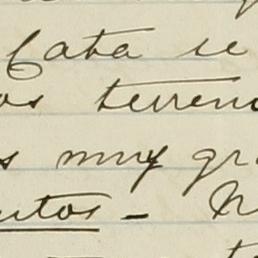 Cata se
os terreno
s muy gr
utos - N